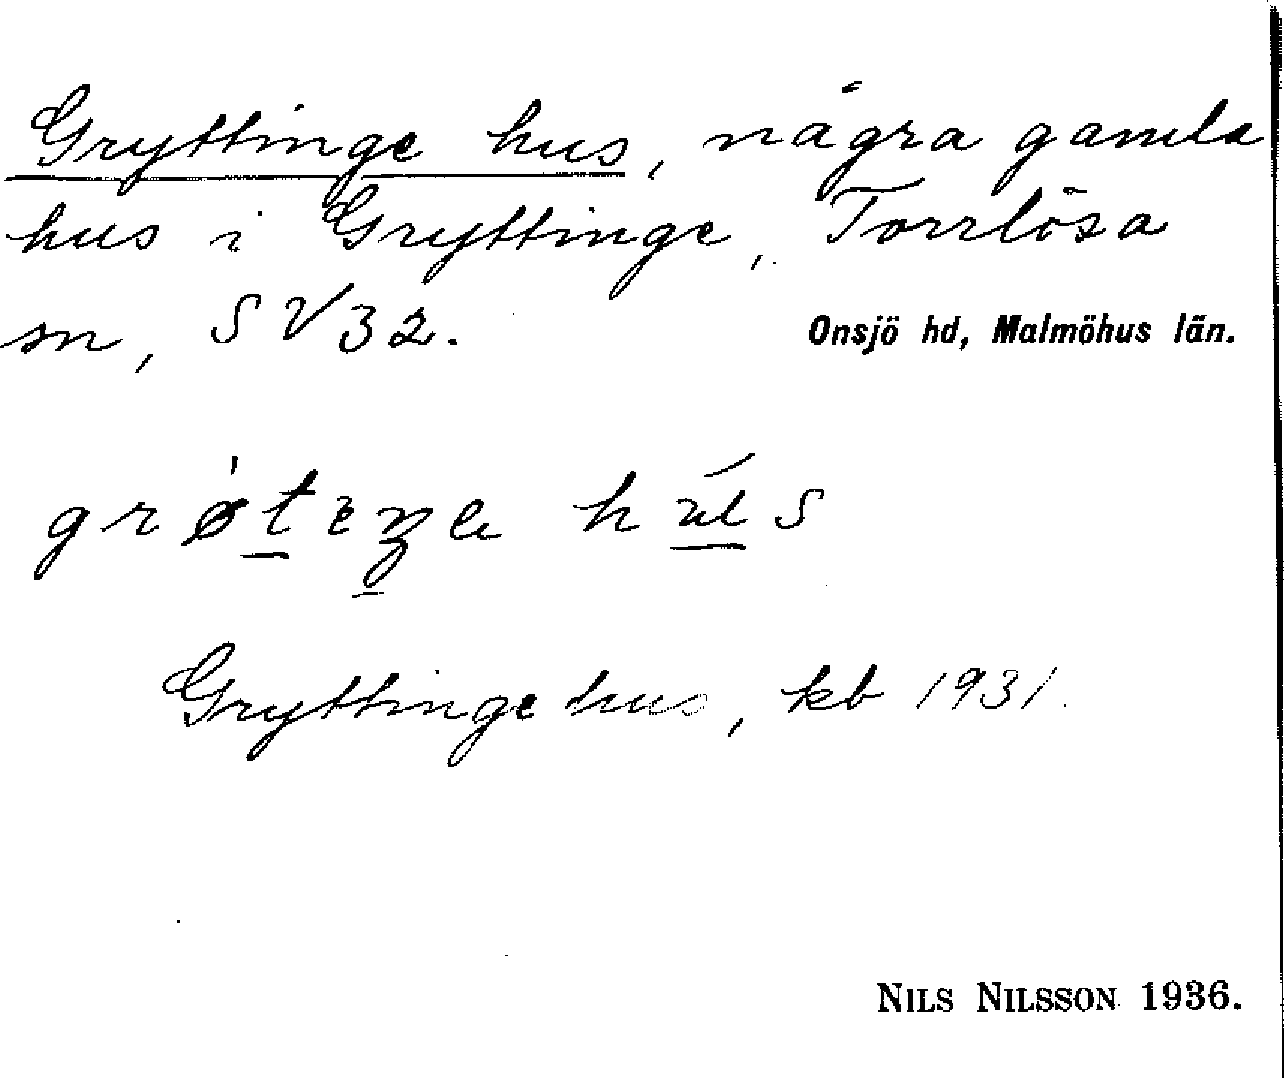 Gryttinge hus, några gamla
hus i Gryttinge, Torrlösa
sn, SV32. Onsjö hd, Malmöhus län.
Gryttinge hus, kb 1931.
NILS NILSSON 1936.